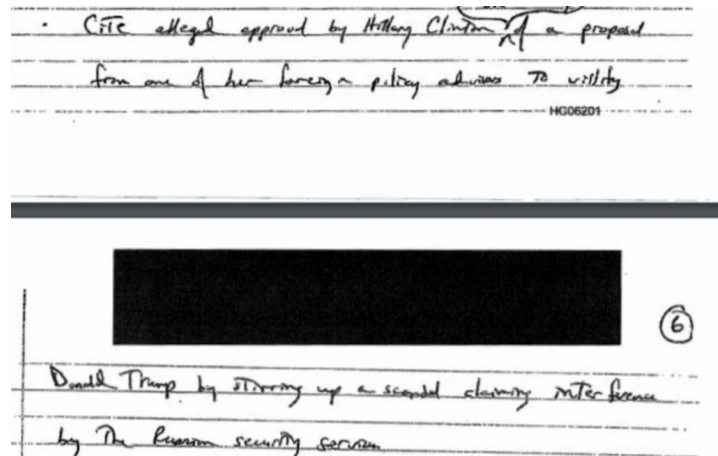 • CITE alleged approval by Hillary Clinton of a proposal
from one of her foreign policy advisors to vilify
HG06201
6
Donald Trump by stirring up a scandal claiming interference
by the Russian security services